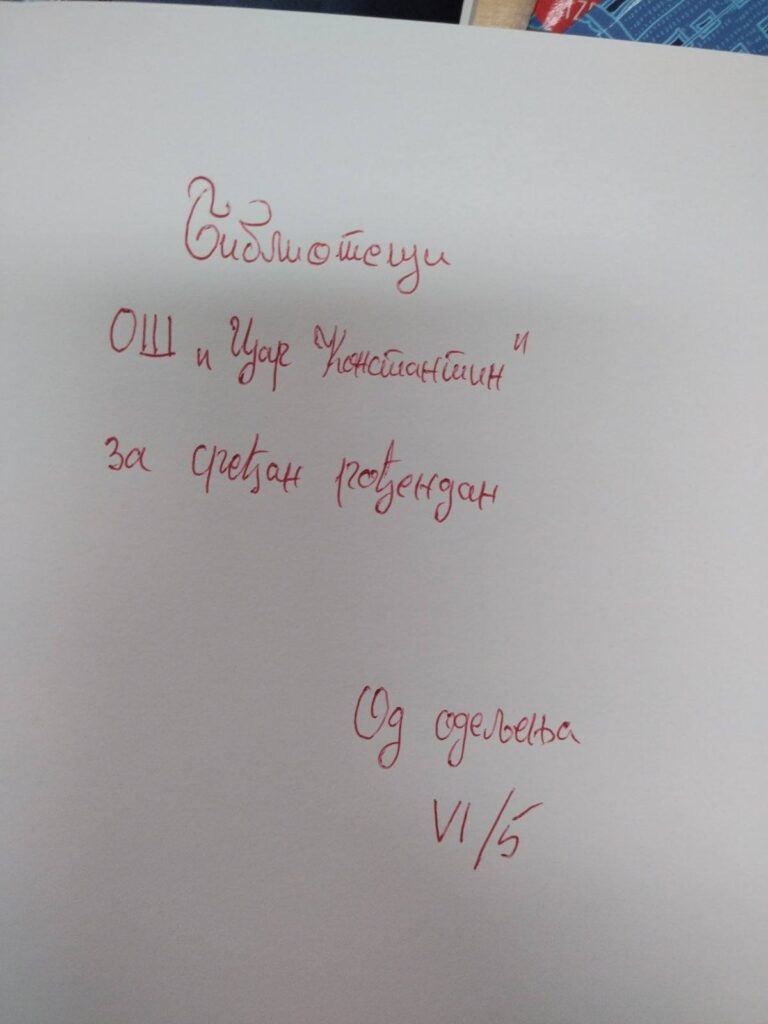 Библиотеци
ОШ „Цар Константин"
за срећан рођендан
Од одељења
VI/5